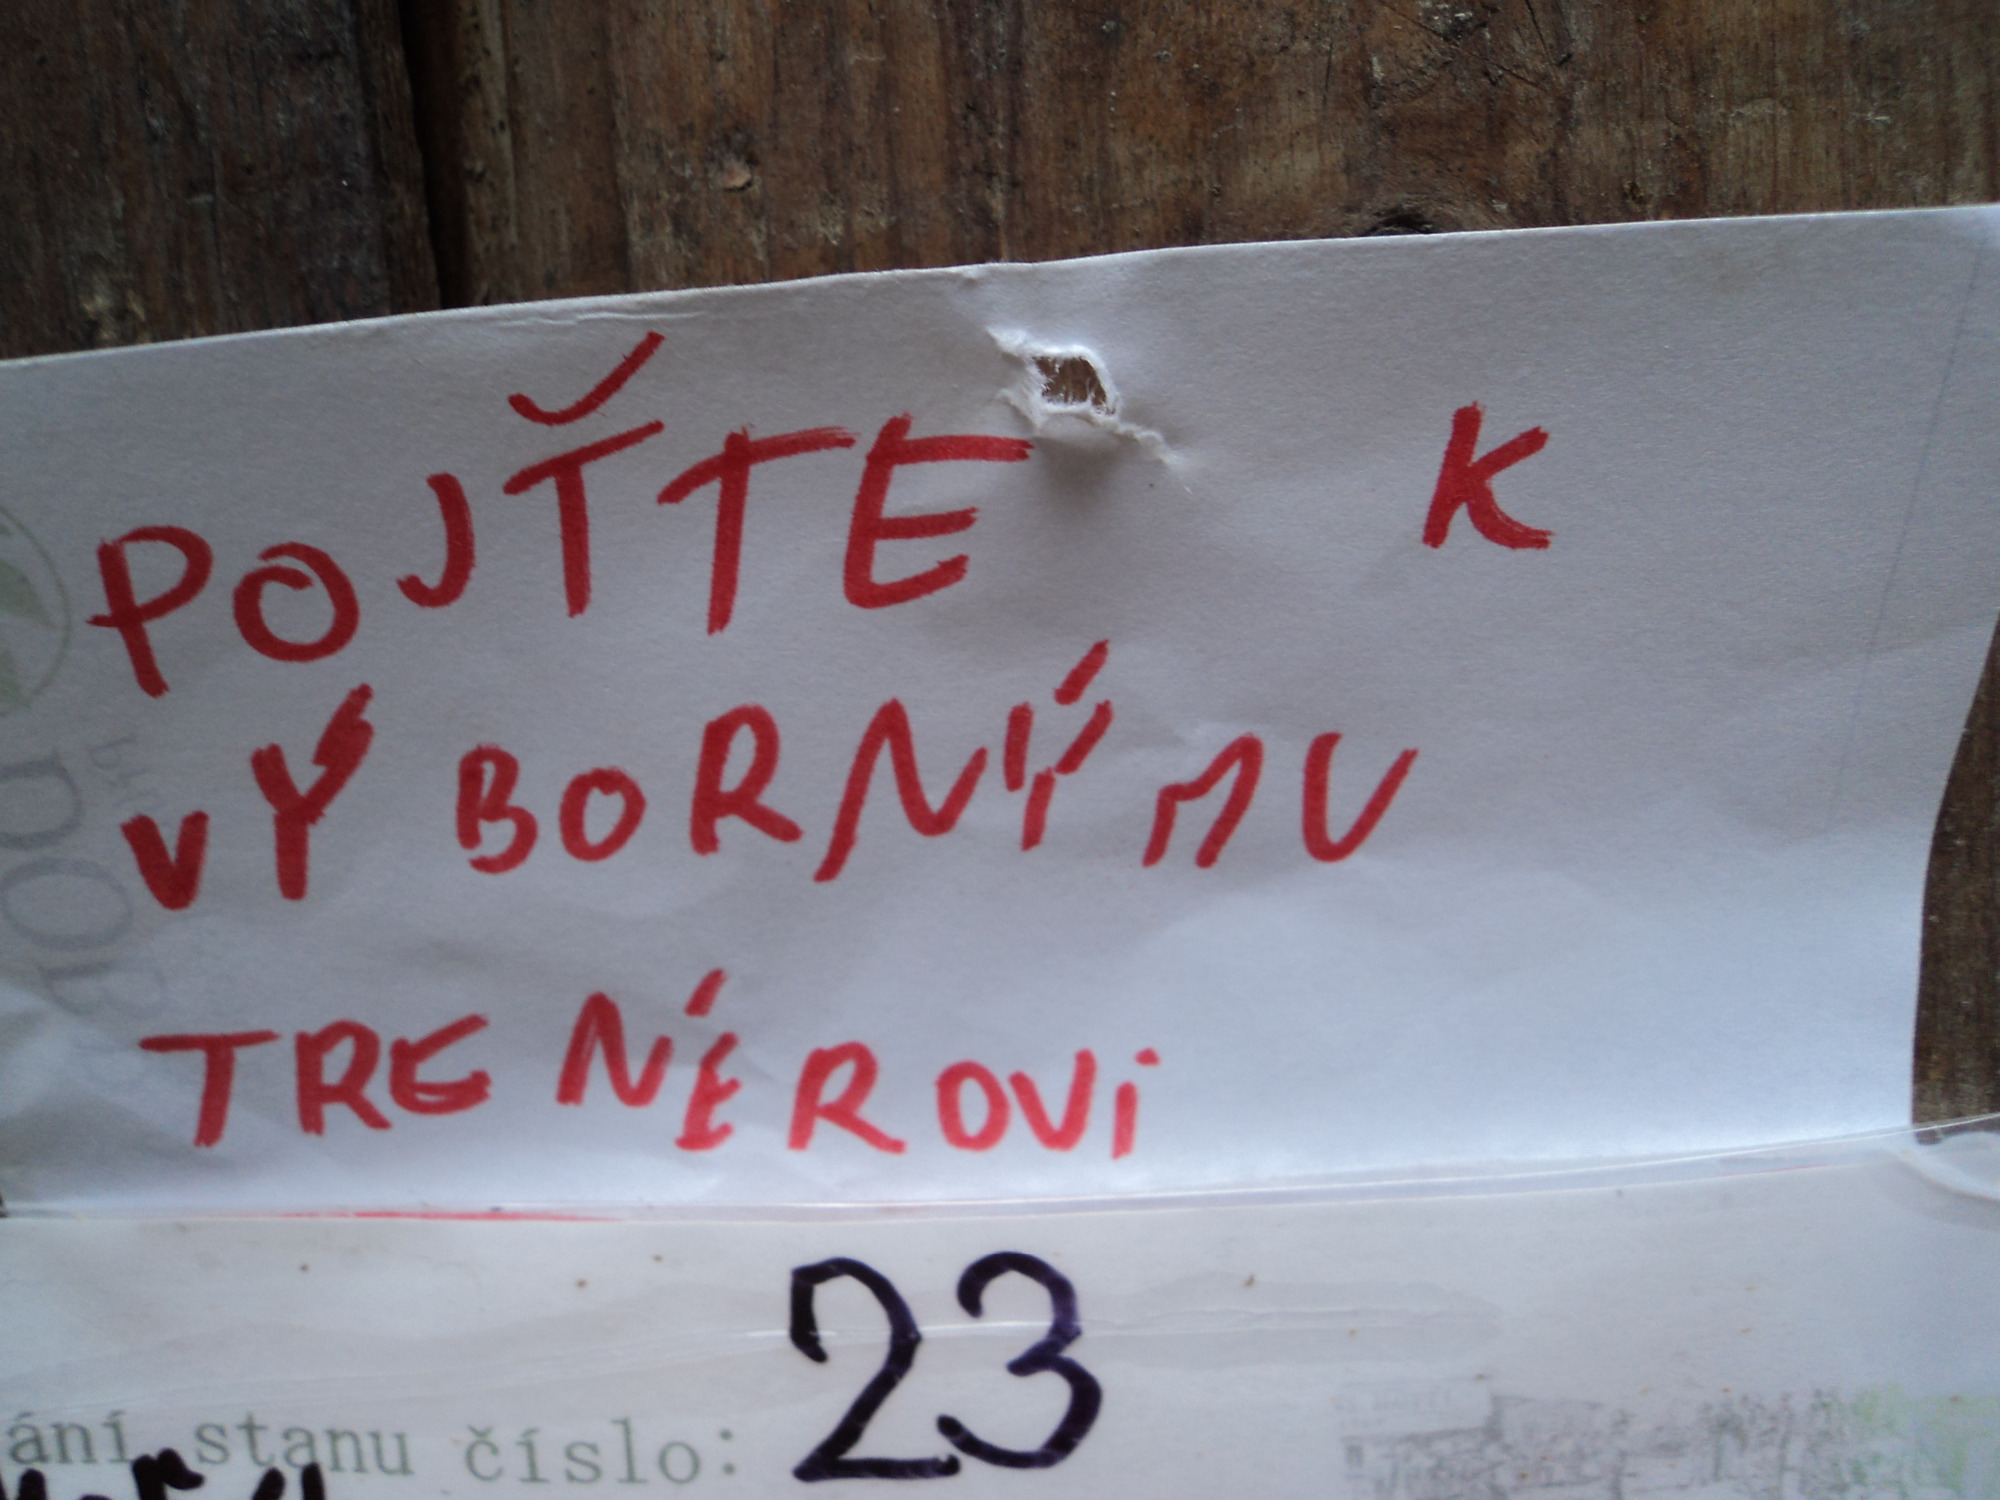 POJŤTE K
VÝBORNÝMU
TRENÉROVi
23
ání stanu číslo: